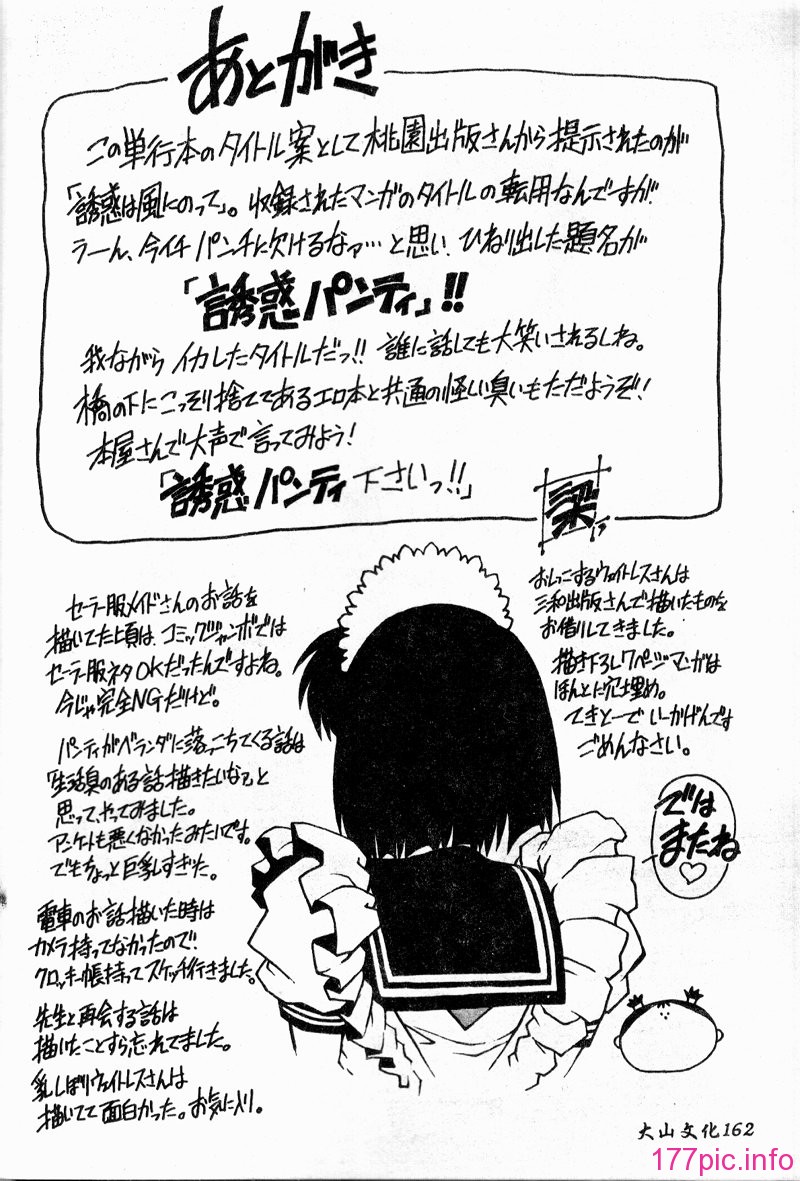 あとがき
この単行本のタイトル案として桃園出版さんから提示されたのが
「誘惑は風にのって」。収録されたマンガのタイトルの転用なんですが
うーん、今イチ パンチに欠けるなァ…と思い、ひねり出した題名が
「誘惑パンティ」!!
我ながら イカしたタイトルだっ!! 誰に話しても大笑いされるしね。
橋の下にこっそり捨ててあるエロ本と共通の怪しい臭いもただようぞ!
本屋さんで大声で言ってみよう!
「誘惑パンティ 下さいっ!!」
セーラー服メイドさんのお話を
描いてた頃は、コミックジャンボでは
セーラー服ネタOKだったんですよね。
今じゃ完全NGだけど。
パンティがベランダに落っこちてくる話は
「生活臭のある話描きたいなァ」と
思って、やってみました。
アンケートも悪くなかったみたいです。
でもちょっと巨乳すぎた。
電車のお話描いた時は
カメラ持ってなかったので
クロッキー帳持ってスケッチ行きました。
先生と再会する話は
描いたことすら忘れてました。
乳しぼりウェイトレスさんは
描いてて面白かった。お気に入り。
おしっこするウェイトレスさんは
三和出版さんで描いたものを
お借りしてきました。
描き下ろし7ページマンガは
ほんとに穴埋め。
てきとーで いーかげんです
ごめんなさい。
では
またね
♡
大山文化162
177pic.info